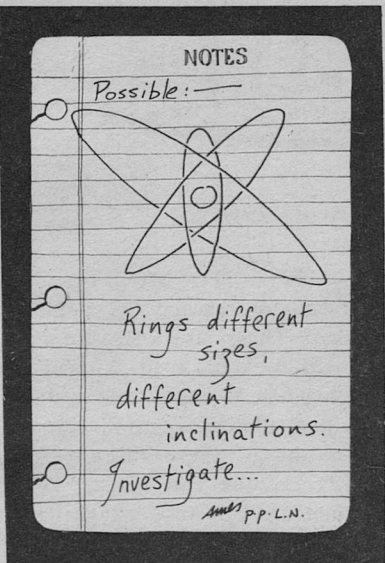 NOTES
Possible:—
Rings different
sizes,
different
inclinations.
Investigate...
p.p. L.N.